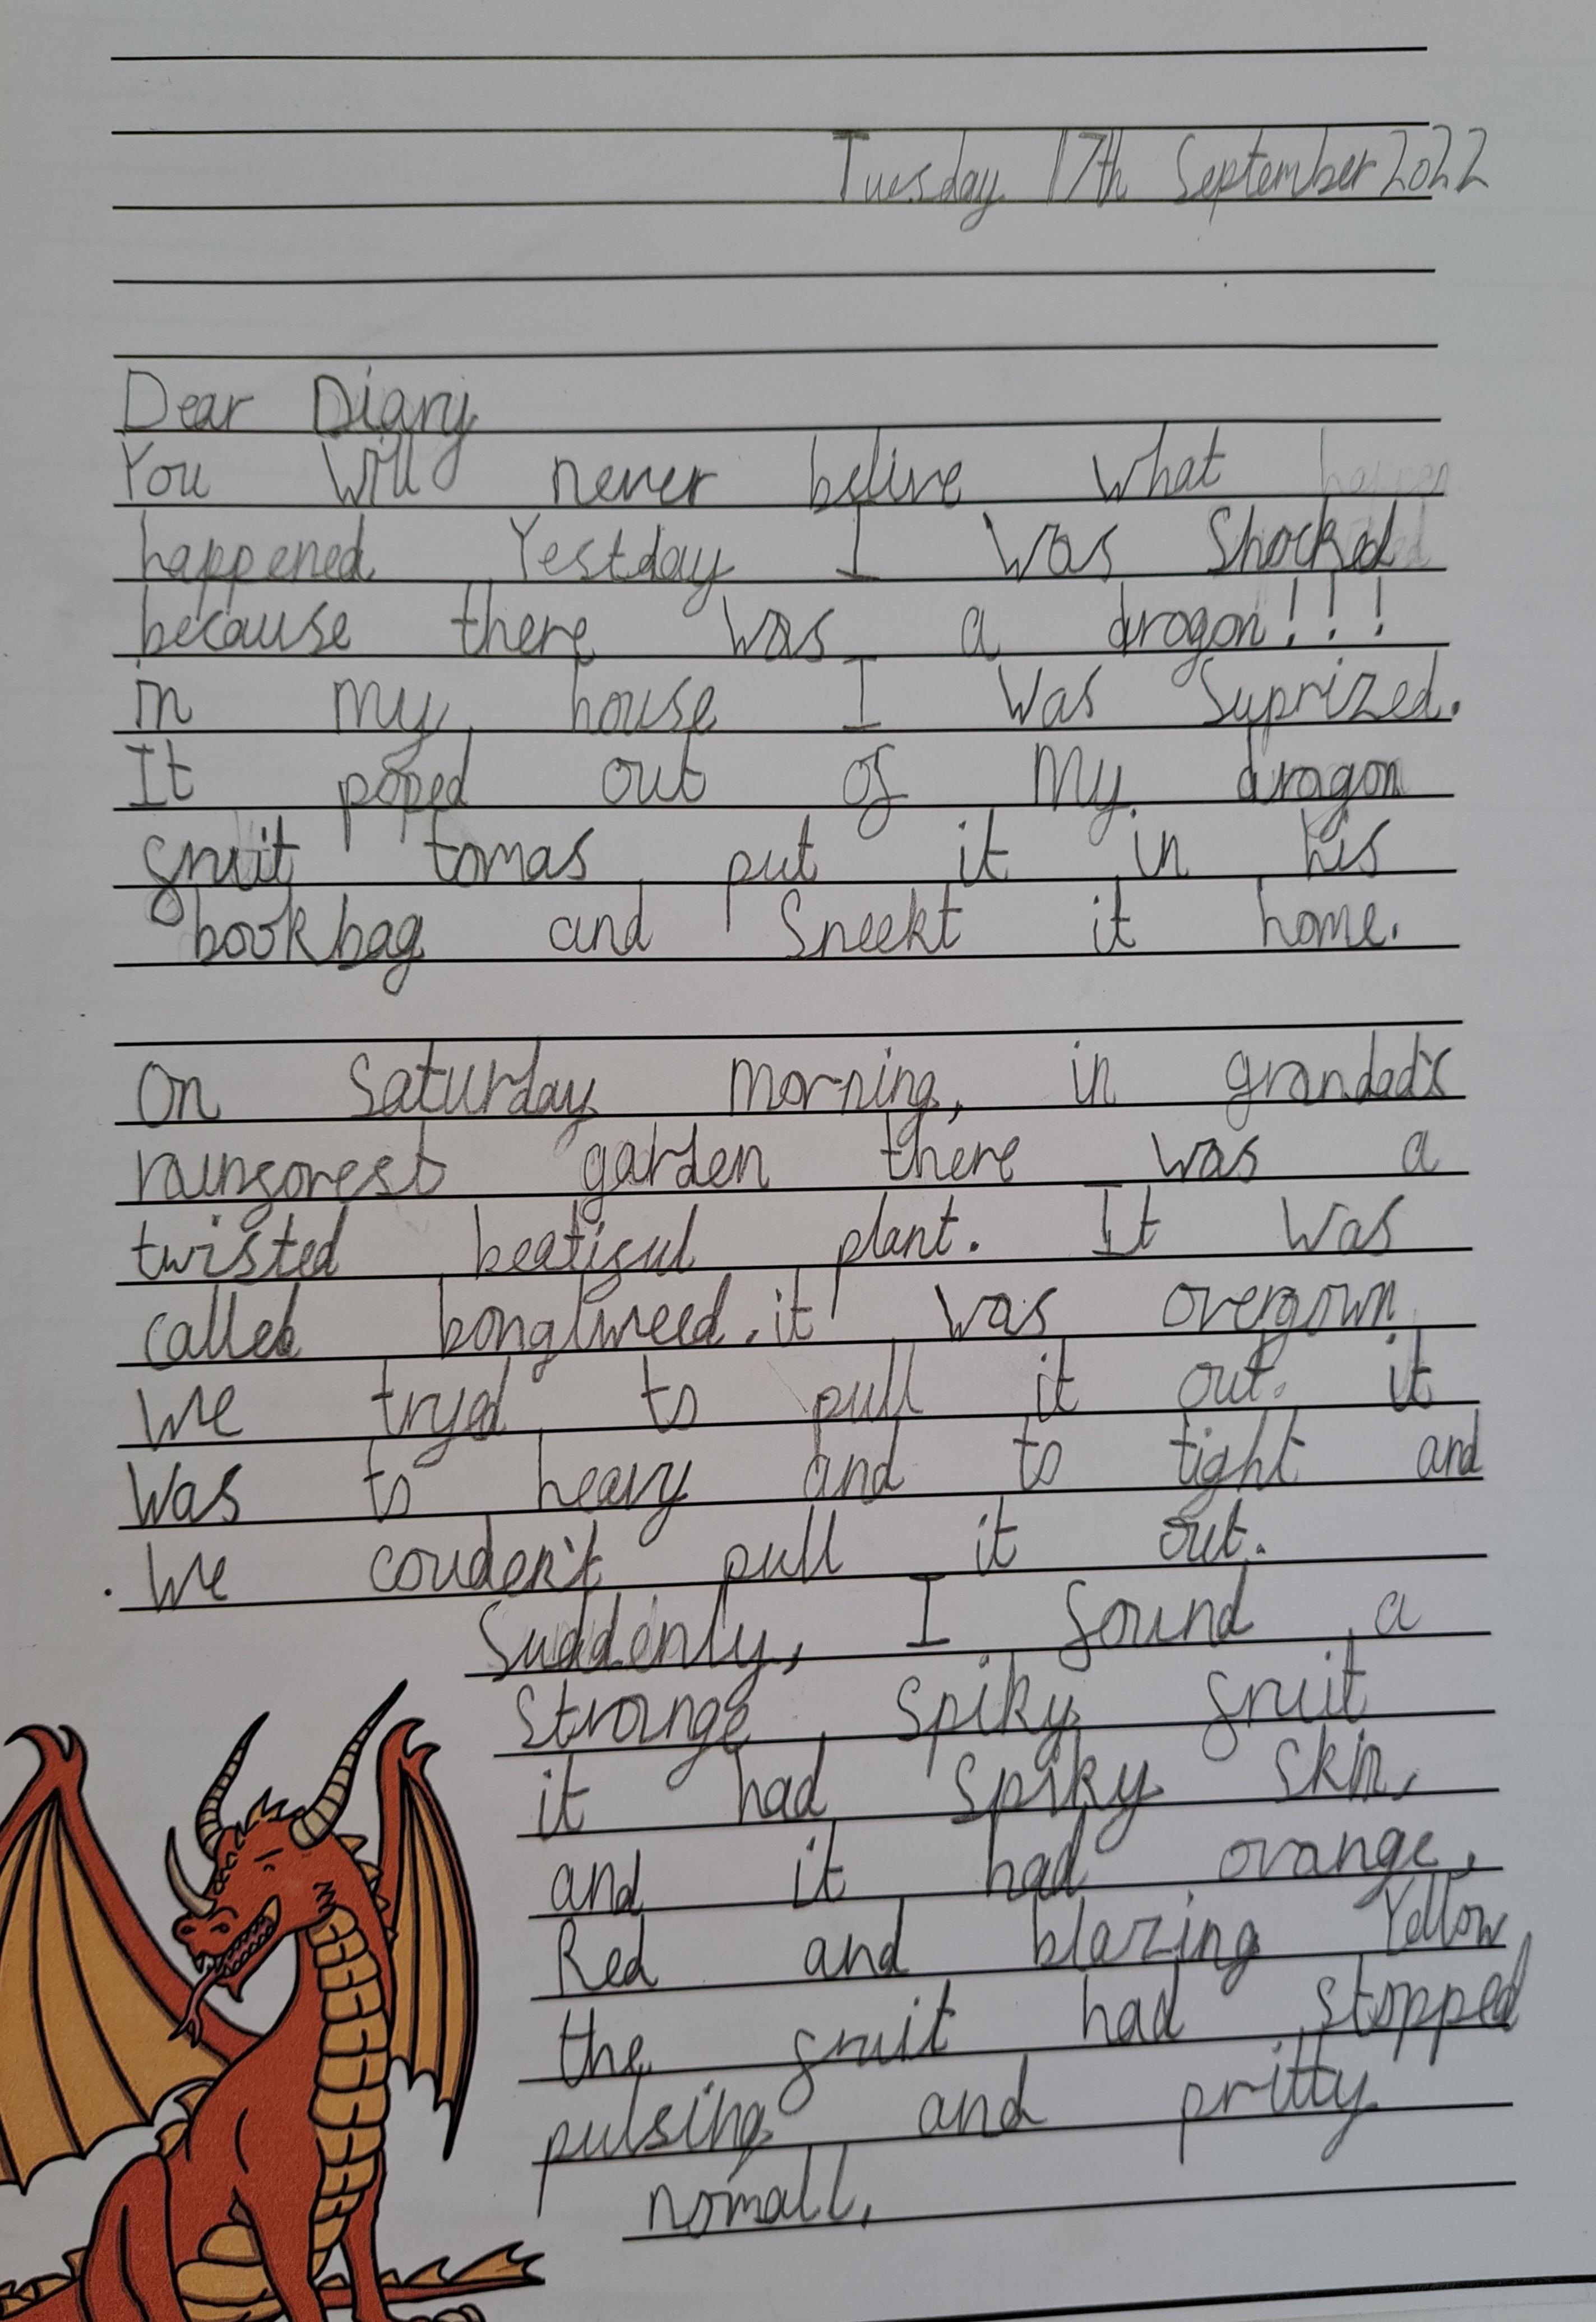 Tuesday 17th September 2022
Dear Diary
You will never belive what happen
happened Yestday I was Shocked
because there was a dragon!!!
in my house I was Suprized.
It poped out of my dragon
fruit tomas put it in his
bookbag and Sneekt it home.
On Saturday morning, in grandad's
rainforest garden there was a
twisted beatiful plant. It was
called bongliweed. it was overgown
We tryd to pull it out. it
was to heavy and to tight and
. We couden't pull it out.
Suddenly, I found a
strange spiky fruit
it had spiky skin,
and it had orange,
Red and blazing Yellow,
the fruit had stopped
pulsing and pritty
nomall,